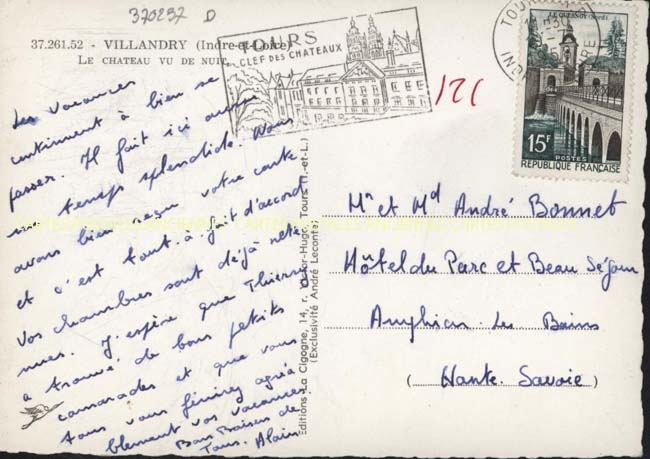 370237 D
37.261.52 - VILLANDRY (Indre-et-Loire)
LE CHATEAU VU DE NUIT
TOURS
CLEF DES CHATEAUX
LE QUESNOY (Nord)
15F
POSTES
REPUBLIQUE FRANÇAISE
121
Les vacances
continuent à bien se
passer. Il fait ici aussi
un temps splendide. Nous
avons bien reçu votre carte
et c'est tout-à-fait d'accord
vos chambres sont déjà rete
nues. J'espère que Thierry
a trouvé de bons petits
camarades et que vous
tous vous finirez agréa
blement vos vacances
Bons Baisers de
Tous. Alain
Editions La Cigogne, 14, r. Victor-Hugo, Tours (I.-et-L.)
(Exclusivité André Leconte)
Mr et Md André Bonnet
Hôtel du Parc et Beau Séjour
Amphion les Bains
(Haute Savoie)